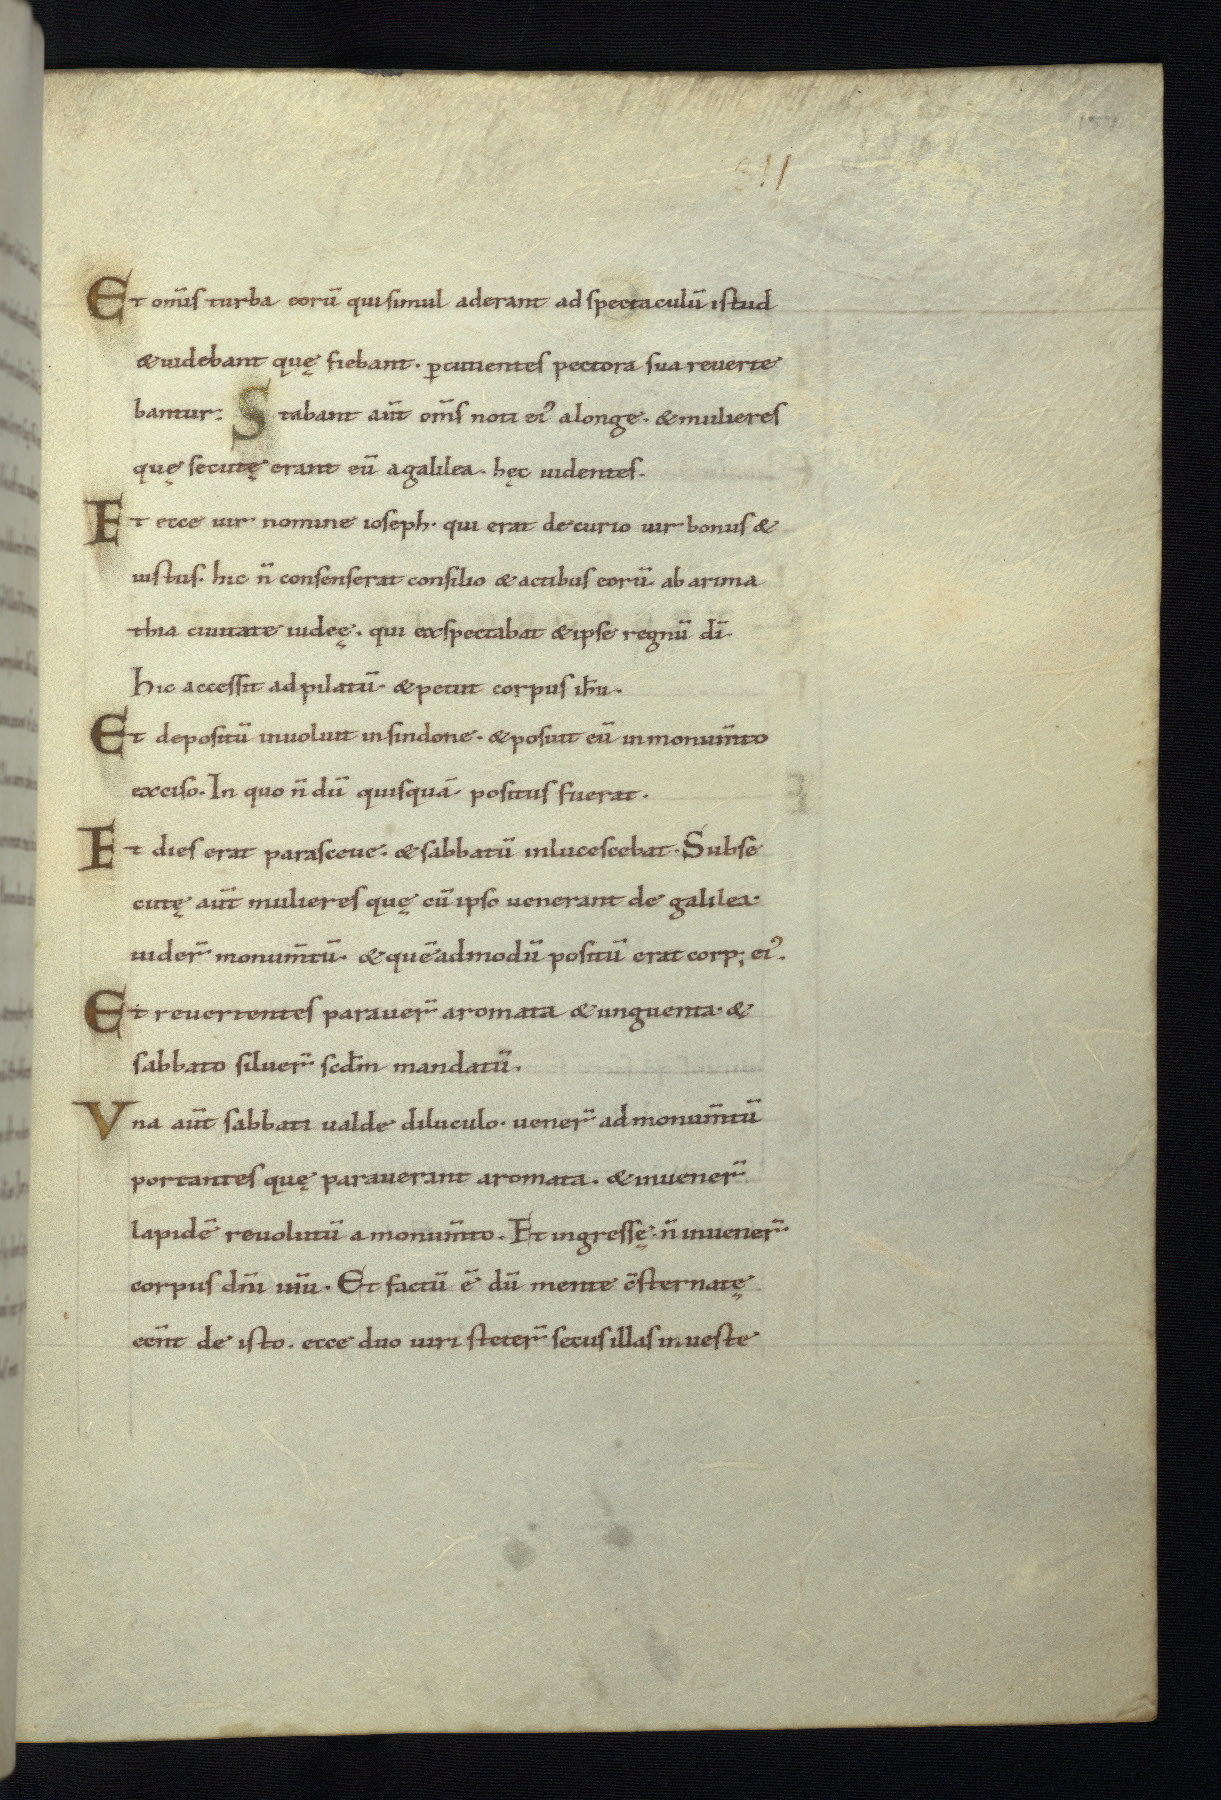 Et om̄is turba eorū qui simul aderant ad spectaculū istud
& uidebant quę fiebant· ꝑcutientes pectora sua reuerte
bantur: Stabant aūt om̄s noti ei᾿ a longe· & mulieres
quę secutę erant eū a galilea· hęc uidentes·
Et ecce uir nomine ioseph· qui erat decurio uir bonus &
iustus· hic n̄ consenserat consilio & actibus eorū· ab arima
thia ciuitate iudeę· qui exspectabat & ipse regnū dī·
hic accessit ad pilatū· & petiit corpus ih̄u·
Et depositū inuoluit in sindone· & posuit eū in monum̄to
exciso· In quo n̄ dū quisquā positus fuerat·
Et dies erat parasceue· & sabbatū inlucescebat· Subse
cutę aūt mulieres quę cū ipso uenerant de galilea·
uider̄ monum̄tū· & quēadmodū positū erat corp; ei᾿·
Et reuertentes parauer̄ aromata & unguenta· &
sabbato siluer̄ scd̄m mandatū·
Vna aūt sabbati ualde diluculo· uener̄ ad monum̄tū
portantes quę parauerant aromata· & inuener̄
lapidē reuolutū a monum̄to· Et ingressę· n̄ inuener̄
corpus dn̄i iħu· Et factū ē dū mente c̄sternatę
eēnt de isto· ecce duo uiri steter̄ secus illas in ueste